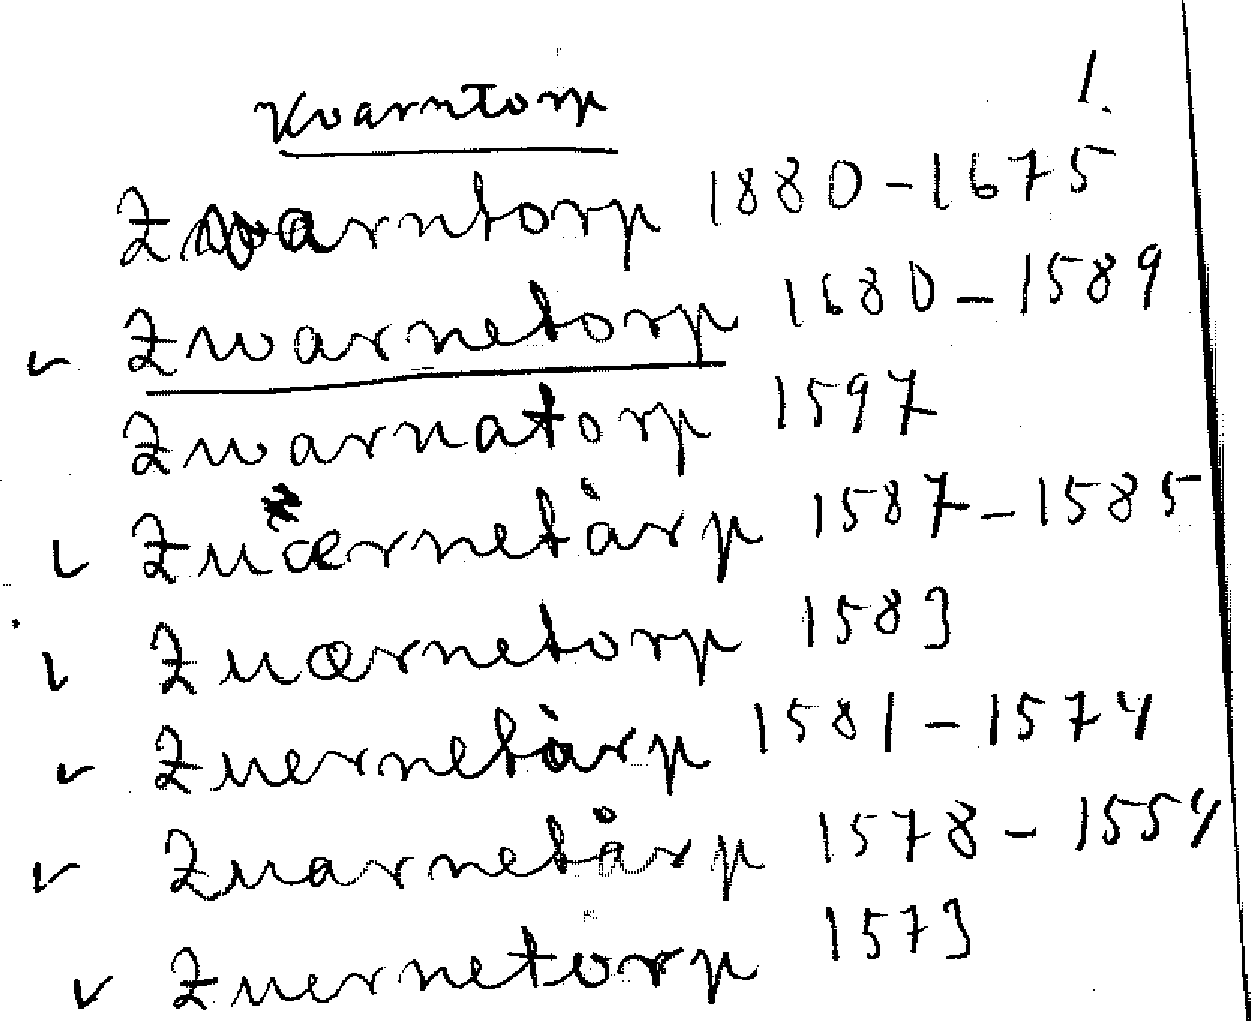 1.
Kvarntorp
Qvarntorp 1880-1675
✓ Qwarnetorp 1680-1589
Qwarnatorp 1597
✓ Quærnetårp 1587-1585
✓ Quærnetorp 1583
✓ Quernetårp 1581-1574
✓ Quarnetårp 1578-1554
✓ Quernetorp 1573